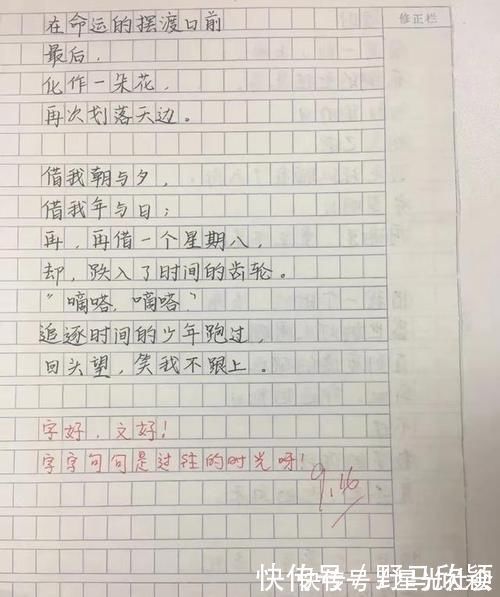 修正栏
在命运的摆渡日前
最后,
化作一朵花,
再次划落天边。
借我朝与夕,
借我年与日;
再,再借一个星期八,
却,跌入了时间的齿轮。
“嘀嗒,嘀嗒”
追逐时间的少年跑过,
回头望,笑我不跟上。
字好,文好!
字字句句是过往的时光呀!
9.16
快传号/野马欣颖